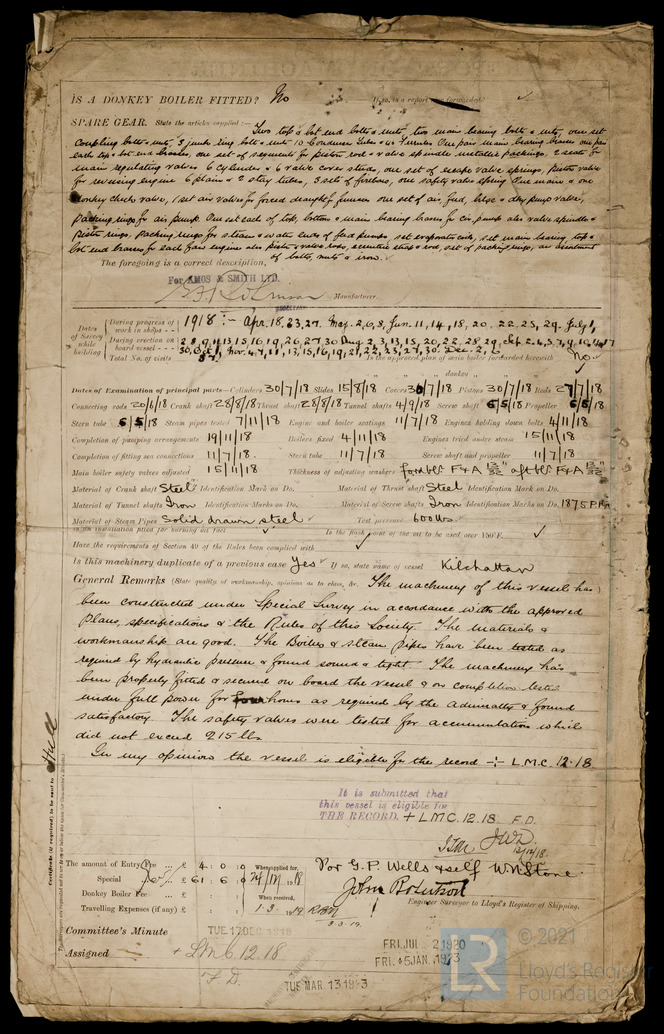 IS A DONKEY BOILER FITTED? No If so, is a report now forwarded?
SPARE GEAR. State the articles supplied:— Two top & bot end bolts & nuts, two main bearing bolts & nuts, one set
coupling bolts & nuts, 3 junk ring bolts & nuts 10 Condenser Tubes & 40 Ferrules One pair main bearing brasses one pair
each top & bot end brasses, one set of segments for piston rod & valve spindle metallic packings, 2 seats for
main regulating valves 6 cylinder & 6 valve cover studs, one set of escape valve springs, piston valve
for reversing engine 6 plain & 2 stay tubes, 3 set of firebars, one safety valve spring One main & one
donkey check valve, 1 set air valves for forced draught furnaces one set of air, feed, bilge & dry pump valves,
packing rings for air pump. One set each of top, bottom & main bearing brasses for cir. pump also valve spindle &
piston rings, packing rings for steam & water ends of feed pumps set evaporator coils, set main bearing top &
bot end brasses for each fan engines also piston & valve rods, eccentric strap & rod, set of packing rings, an assortment
of bolts, nuts & iron.
The foregoing is a correct description,
For AMOS & SMITH LTD.
Manufacturer.
Dates of Survey while building
During progress of work in shops - - 1918:- Apr. 18, 23, 27. May. 2, 6, 8, Jun. 11, 14, 18, 20, 22, 25, 29. July 1,
During erection on board vessel - - - 2, 8, 9, 11, 13, 15, 16, 19, 26, 27, 30 Aug 2, 3, 13, 15, 20, 22, 28, 29, Sep 2, 4, 5, 7, 9, 10, 14, 17
30, Oct 1, Nov. 4, 7, 11, 13, 15, 16, 19, 21, 22, 23, 27, 30. Dec. 2, 6
Total No. of visits 57 Is the approved plan of main boiler forwarded herewith No
" " " donkey " " "
Dates of Examination of principal parts—Cylinders 30/7/18 Slides 15/8/18 Covers 30/7/18 Pistons 30/7/18 Rods 27/7/18
Connecting rods 20/6/18 Crank shaft 28/8/18 Thrust shaft 28/8/18 Tunnel shafts 4/9/18 Screw shaft 6/5/18 Propeller 6/5/18
Stern tube 6/5/18 Steam pipes tested 7/11/18 Engine and boiler seatings 11/7/18 Engines holding down bolts 4/11/18
Completion of pumping arrangements 19/11/18 Boilers fixed 4/11/18 Engines tried under steam 15/11/18
Completion of fitting sea connections 11/7/18. Stern tube 11/7/18 Screw shaft and propeller 11/7/18
Main boiler safety valves adjusted 15/11/18 Thickness of adjusting washers for'd blr F & A aft blr F & A
Material of Crank shaft Steel Identification Mark on Do. Material of Thrust shaft Steel Identification Mark on Do.
Material of Tunnel shafts Iron Identification Marks on Do. Material of Screw shafts Iron Identification Marks on Do. 1875
Material of Steam Pipes Solid drawn steel Test pressure 600 lbs
Is an installation fitted for burning oil fuel Is the flash point of the oil to be used over 150°F.
Have the requirements of Section 49 of the Rules been complied with
Is this machinery duplicate of a previous case Yes If so, state name of vessel Kilchattan
General Remarks (State quality of workmanship, opinions as to class, &c. The machinery of this vessel has
been constructed under Special Survey in accordance with the approved
plans, specifications & the Rules of this Society. The materials &
workmanship are good. The Boilers & steam pipes have been tested as
required by hydraulic pressure & found sound & tight The machinery has
been properly fitted & secured on board the vessel & on completion tested
under full power for four hours as required by the Admiralty & found
satisfactory. The safety valves were tested for accumulation which
did not exceed 215 lbs.
In my opinion the vessel is eligible for the record + L.M.C. 12.18
It is submitted that
this vessel is eligible for
THE RECORD. + L.M.C. 12.18 F.D.
JWD
12/12/18.
Certificate (if required) to be sent to Hull
The amount of Entry Fee ... £ 4 : 0 : 0 When applied for,
Special ... £ 61 : 6 : 0 24/12/1918
Donkey Boiler Fee ... £ : : When received,
Travelling Expenses (if any) £ : : 1.3.1919
For G.P. Wells & self W.N. Stone
John Robertson
Engineer Surveyor to Lloyd's Register of Shipping.
Committee's Minute TUE. 17 DEC. 1918
Assigned + LMC 12.18
F.D.
FRI. JUL 2 1920
FRI. 5 JAN. 1923
TUE. MAR. 13 1923
LR © 2021
Lloyd's Register
Foundation